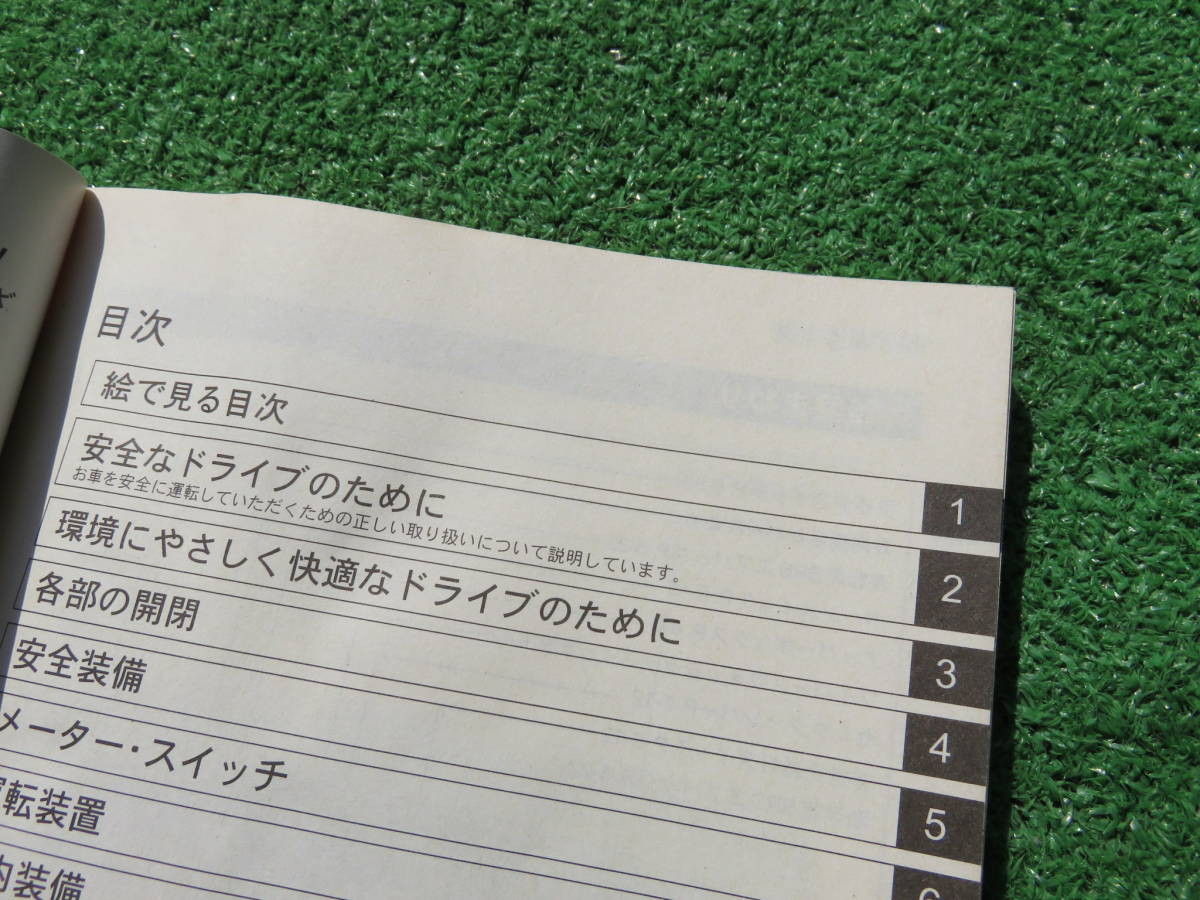 目次
絵で見る目次
1
安全なドライブのために
お車を安全に運転していただくための正しい取り扱いについて説明しています。
2
環境にやさしく快適なドライブのために
3
各部の開閉
4
安全装備
5
メーター・スイッチ
6
運転装置
内装備